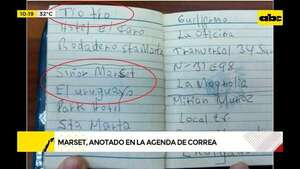 10:19 32°C
abc
Tio tro
Hotel El Faro
Rodadero sta Marta
Señor Marset
El uruguayo
Park Hotel
Sta Marta
Guillermo
La Oficina
Tranversal 34 Sur
La Magnolia
Mirian Muñoz
Local tv
MARSET, ANOTADO EN LA AGENDA DE CORREA